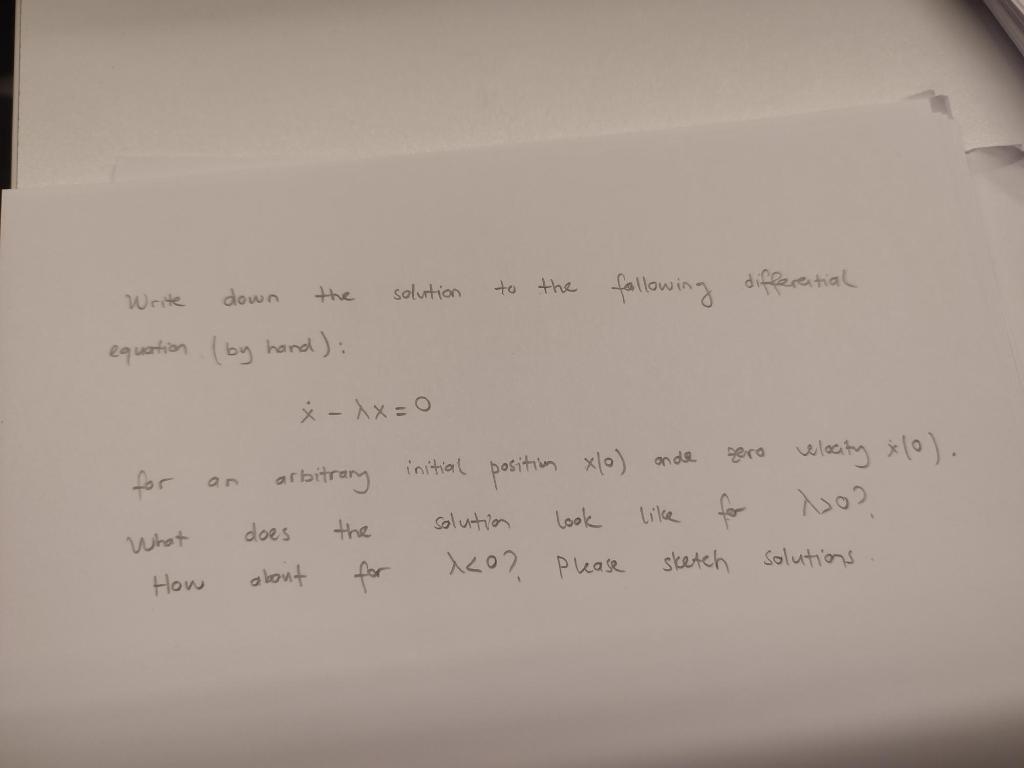 Write down the solution to the following differential
equation (by hand):
ẋ - λx = 0
for an arbitrary initial position x(0) and zero velocity ẋ(0).
What does the solution look like for λ>0?
How about for λ<0? Please sketch solutions.